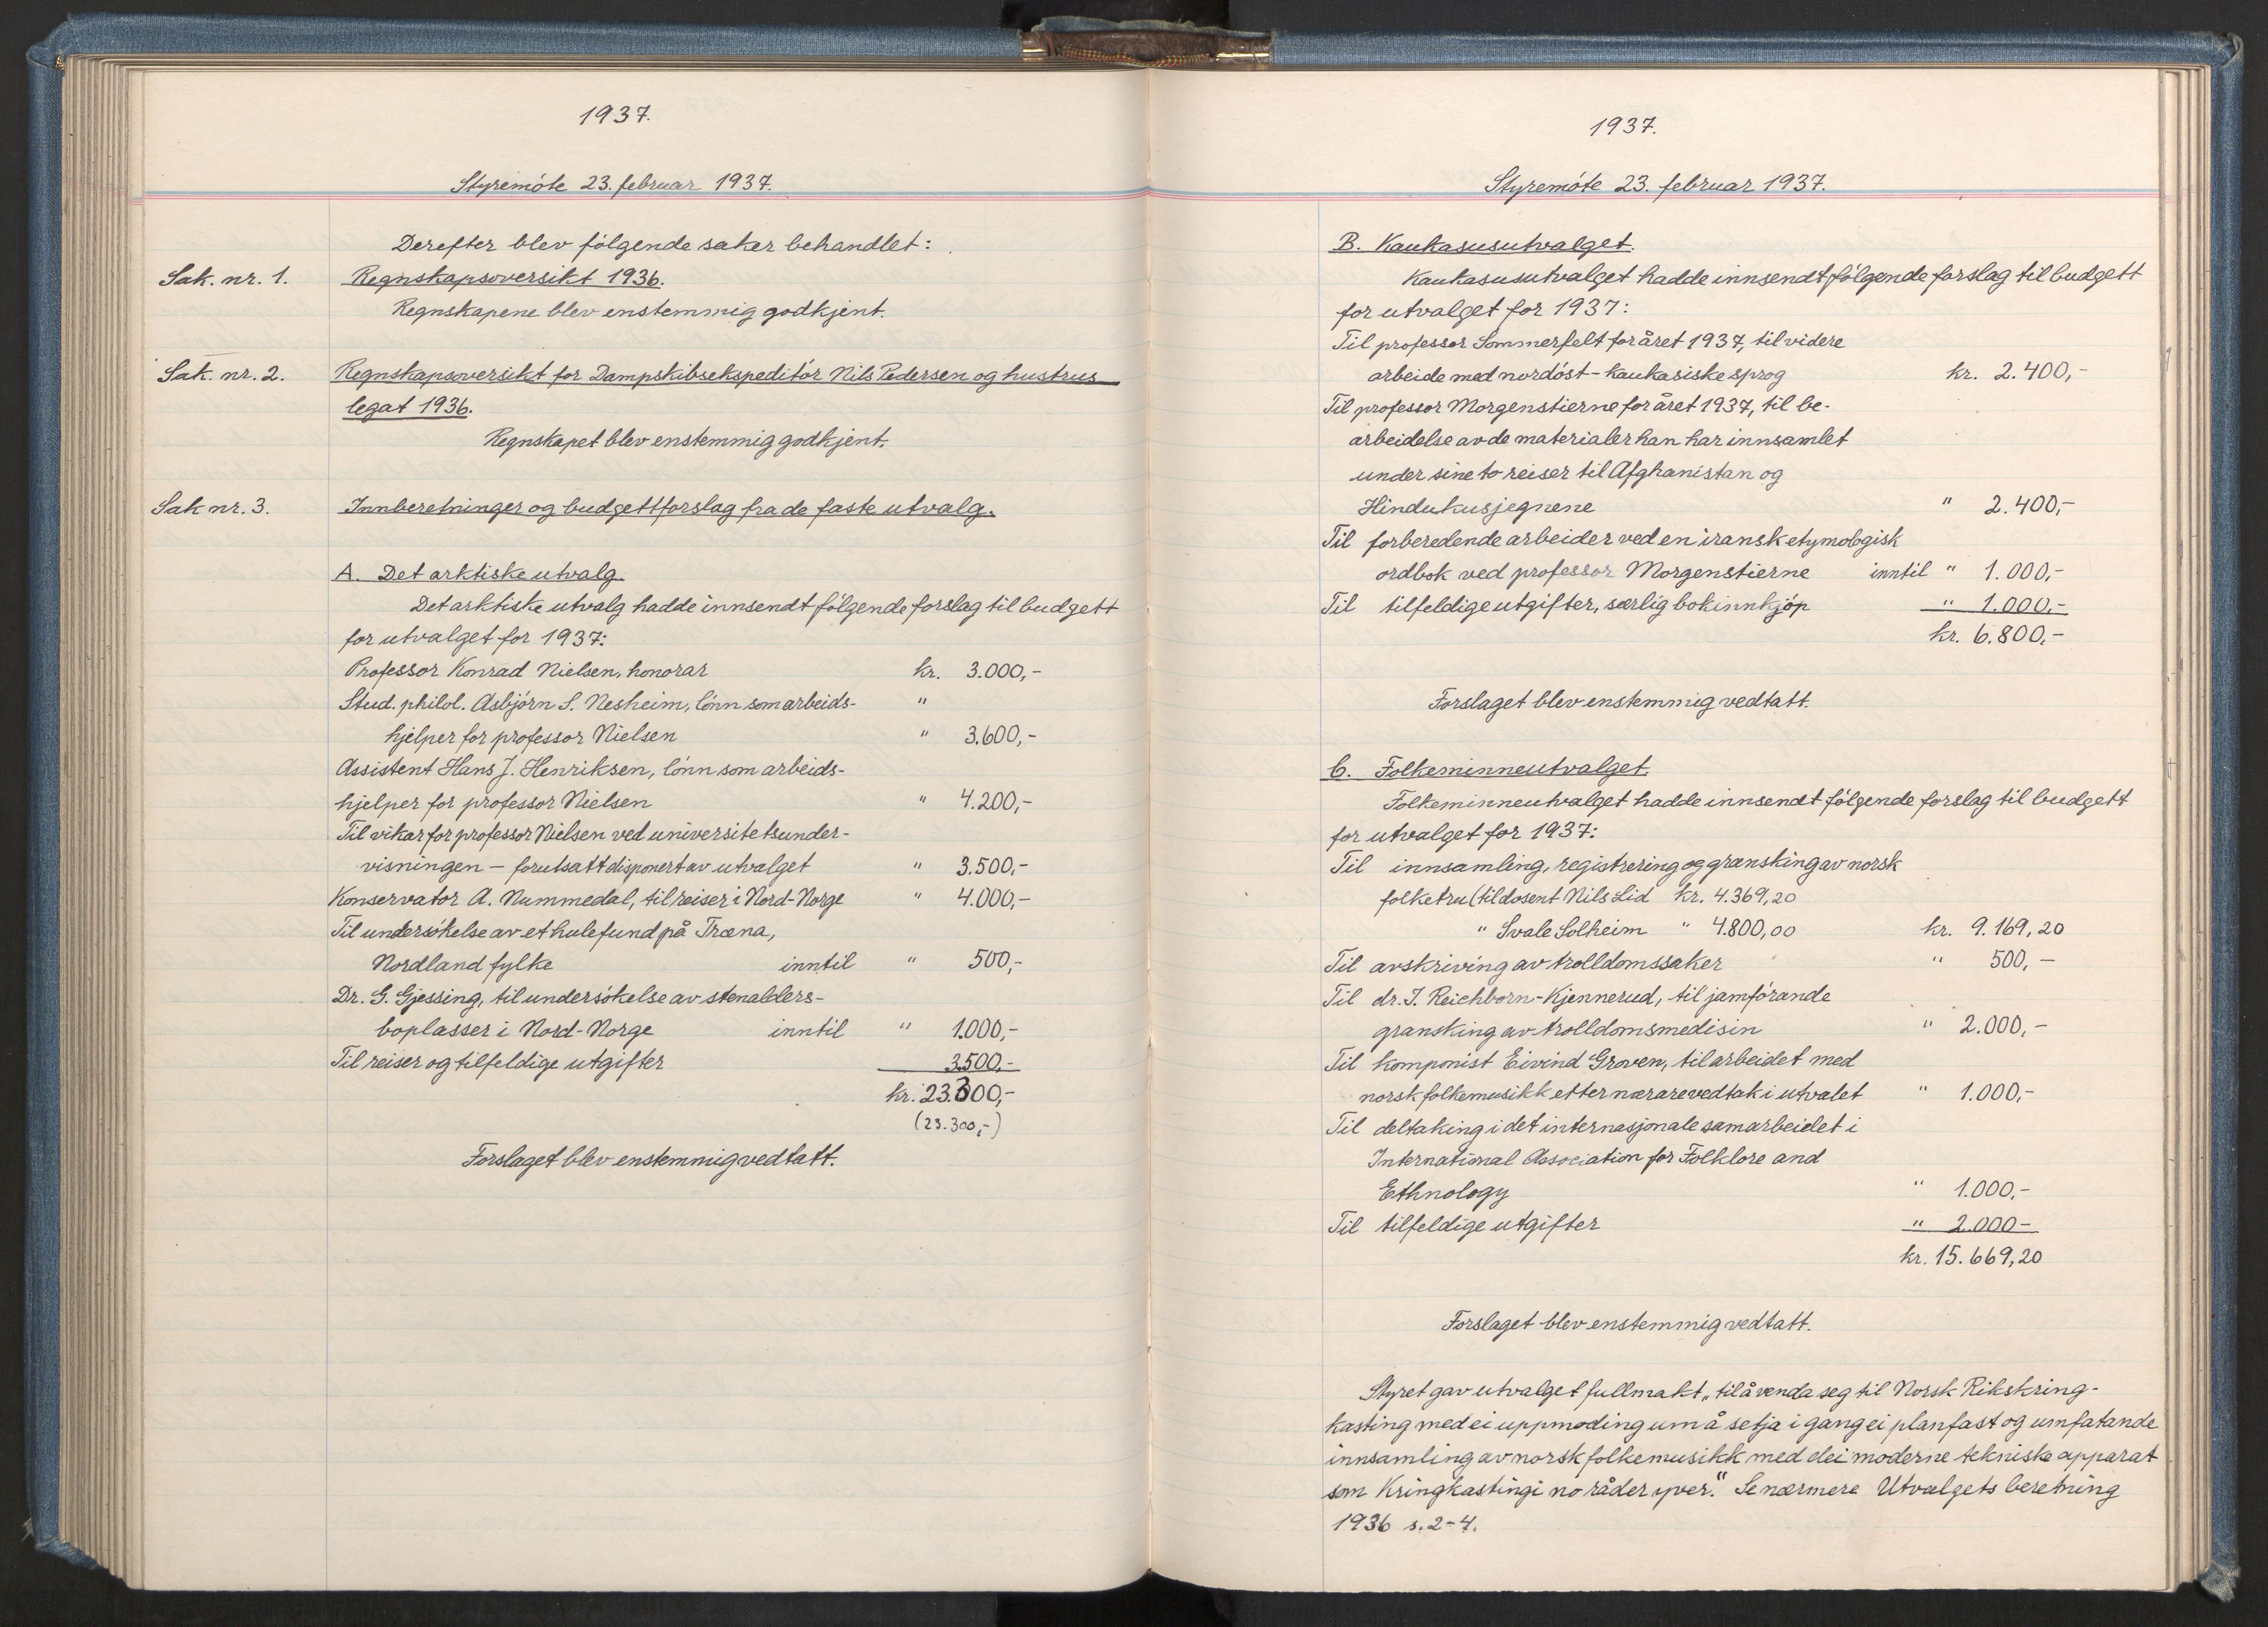 1937.
Styremöte 23. februar 1937.
Derefter blev fölgende saker behandlet:
Sak. nr. 1. Regnskapsoversikt 1936.
Regnskapene blev enstemmig godkjent.
Sak. nr. 2. Regnskapsoversikt for Dampskibsekspeditör Nils Pedersen og hustrus
legat 1936.
Regnskapet blev enstemmig godkjent.
Sak nr. 3. Innberetninger og budgettforslag fra de faste utvalg.
A. Det arktiske utvalg.
Det arktiske utvalg hadde innsendt fölgende forslag til budgett
for utvalget for 1937:
Professor Konrad Nielsen, honorar kr. 3.000,-
Stud. philol. Asbjörn S. Nesheim, lönn som arbeids- "
hjelper for professor Nielsen " 3.600,-
Assistent Hans J. Henriksen, lönn som arbeids-
hjelper for professor Nielsen " 4.200,-
Til vikar for professor Nielsen ved universitetsunder-
visningen - forutsatt disponert av utvalget " 3.500,-
Konservator A. Nummedal, til reiser i Nord-Norge " 4.000,-
Til undersökelse av et hulefund på Træna,
Nordland fylke inntil " 500,-
Dr. G. Gjessing, til undersökelse av stenalders-
boplasser i Nord-Norge inntil " 1.000,-
Til reiser og tilfeldige utgifter 3.500,-
kr. 23.300,-
(23.300,-)
Forslaget blev enstemmig vedtatt.
1937.
Styremöte 23. februar 1937.
B. Kaukasusutvalget.
Kaukasusutvalget hadde innsendt fölgende forslag til budgett
for utvalget for 1937:
Til professor Sommerfelt for året 1937, til videre
arbeide med nordöst-kaukasiske sprog kr. 2.400,-
Til professor Morgenstierne for året 1937, til be-
arbeidelse av de materialer han har innsamlet
under sine to reiser til Afghanistan og
Hindukusjegnene " 2.400,-
Til forberedende arbeider ved en iransk etymologisk
ordbok ved professor Morgenstierne inntil " 1.000,-
Til tilfeldige utgifter, særlig bokinnkjöp " 1.000,-
kr. 6.800,-
Forslaget blev enstemmig vedtatt.
C. Folkeminneutvalget.
Folkeminneutvalget hadde innsendt fölgende forslag til budgett
for utvalget for 1937:
Til innsamling, registrering og gransking av norsk
folketru (til dosent Nils Lid kr. 4.369,20
" Svale Solheim " 4.800,00 kr. 9.169,20
Til avskriving av trolldomssaker " 500,-
Til dr. I. Reichborn-Kjennerud, til jamförande
gransking av trolldomsmedisin " 2.000,-
Til komponist Eivind Groven, til arbeidet med
norsk folkemusikk etter nærare vedtak i utvalet " 1.000,-
Til deltaking i det internasjonale samarbeidet i
International Association for Folklore and
Ethnology " 1.000,-
Til tilfeldige utgifter " 2.000-
kr. 15.669,20
Forslaget blev enstemmig vedtatt.
Styret gav utvalget fullmakt „til å venda seg til Norsk Rikskring-
kasting med ei uppmoding um å setja i gang ei planfast og umfatande
innsamling av norsk folkemusikk med dei moderne tekniske apparat
som Kringkastingi no råder yver." Se nærmere Utvalgets beretning
1936 s. 2-4.